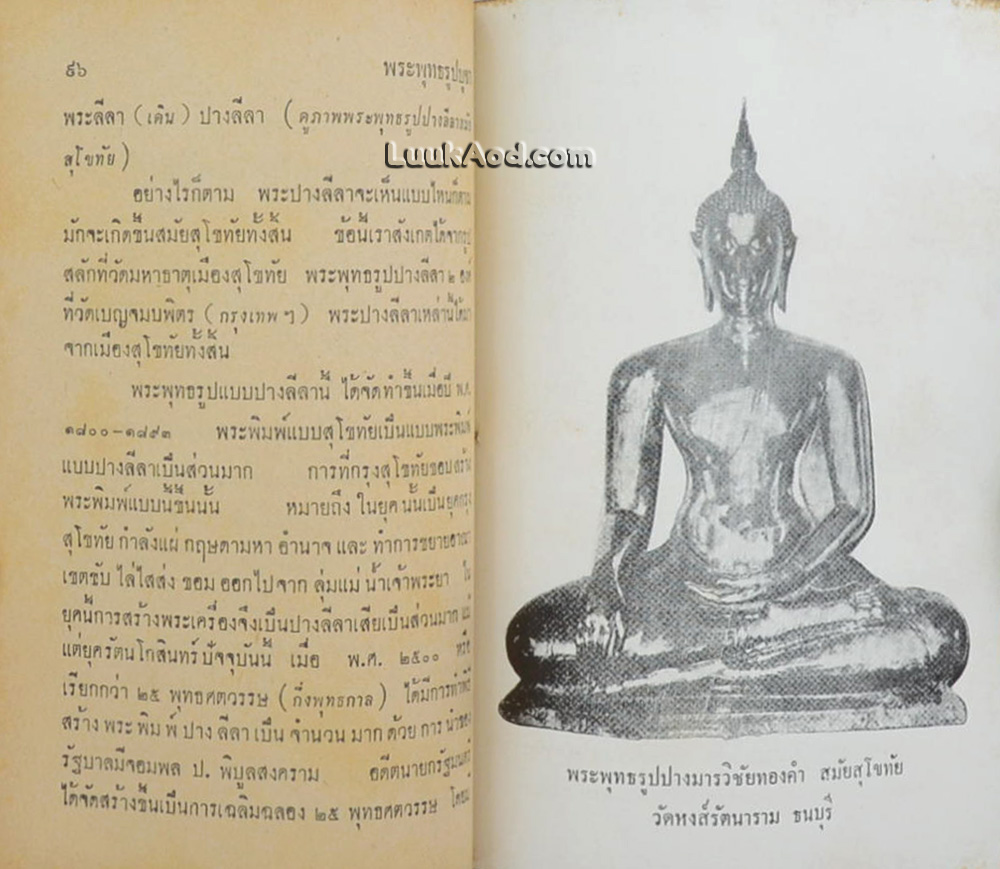 ๙๖ พระพุทธรูปบูชา
พระลีลา (เดิน) ปางลีลา (ดูภาพพระพุทธรูปปางลีลาสมัย
สุโขทัย)
LuukAod.com
อย่างไรก็ตาม พระปางลีลาจะเห็นแบบไหนก็ตาม
มักจะเกิดขึ้นสมัยสุโขทัยทั้งสิ้น ข้อนี้เราสังเกตได้จากรูป
สลักที่วัดมหาธาตุเมืองสุโขทัย พระพุทธรูปปางลีลา ๒ องค์
ที่วัดเบญจมบพิตร (กรุงเทพ ฯ) พระปางลีลาเหล่านี้ได้มา
จากเมืองสุโขทัยทั้งสิ้น
พระพุทธรูปแบบปางลีลานี้ ได้จัดทำขึ้นเมื่อปี พ.ศ.
๑๘๐๐-๑๘๙๓ พระพิมพ์แบบสุโขทัยเป็นแบบพระพิมพ์
แบบปางลีลาเป็นส่วนมาก การที่กรุงสุโขทัยชอบสร้าง
พระพิมพ์แบบนี้ขึ้นนั้น หมายถึง ในยุคนั้นเป็นยุคกรุง
สุโขทัย กำลังแผ่ กฤษดามหา อำนาจ และ ทำการขยายอาณา
เขตขับ ไล่ไสส่ง ขอม ออกไปจาก ลุ่มแม่ น้ำเจ้าพระยา ใน
ยุคนี้การสร้างพระเครื่องจึงเป็นปางลีลาเสียเป็นส่วนมาก
แต่ยุครัตนโกสินทร์ปัจจุบันนี้ เมื่อ พ.ศ. ๒๕๐๐ หรือ
เรียกกว่า ๒๕ พุทธศตวรรษ (กึ่งพุทธกาล) ได้มีการทำพิธี
สร้าง พระ พิม พ์ ปาง ลีลา เป็น จำนวน มาก ด้วย การ นำของ
รัฐบาลมีจอมพล ป. พิบูลสงคราม อดีตนายกรัฐมนตรี
ได้จัดสร้างขึ้นเป็นการเฉลิมฉลอง ๒๕ พุทธศตวรรษ
พระพุทธรูปปางมารวิชัยทองคำ สมัยสุโขทัย
วัดหงส์รัตนาราม ธนบุรี